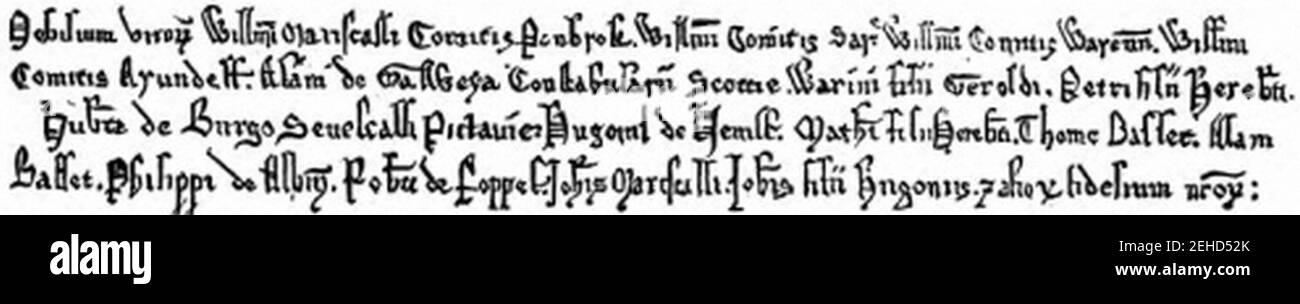 Nobilium viroꝝ Willmi Mariscalli Comitis Penbrok. Willmi Comitis Sarꝰ Willmi Comitis Warenn. Willmi
Comitis Arundell. Alam de Galweya Constabularii Scocie. Warini filii Geroldi. Petri filii Hereb̄ti.
Hub̄ti de Burgo Senescalli Pictavie. Hugonis de Mathi filii Hereb̄ti. Thome Basset. Alam
Basset. Philippi de Albiñ. Rob̄ti de Roppel. Joh̄is Marscalli. Joh̄is filii Hugonis. ⁊ alioꝝ fidelium nr̄oꝝ:
alamy
Image ID: 2EHD52K
www.alamy.com